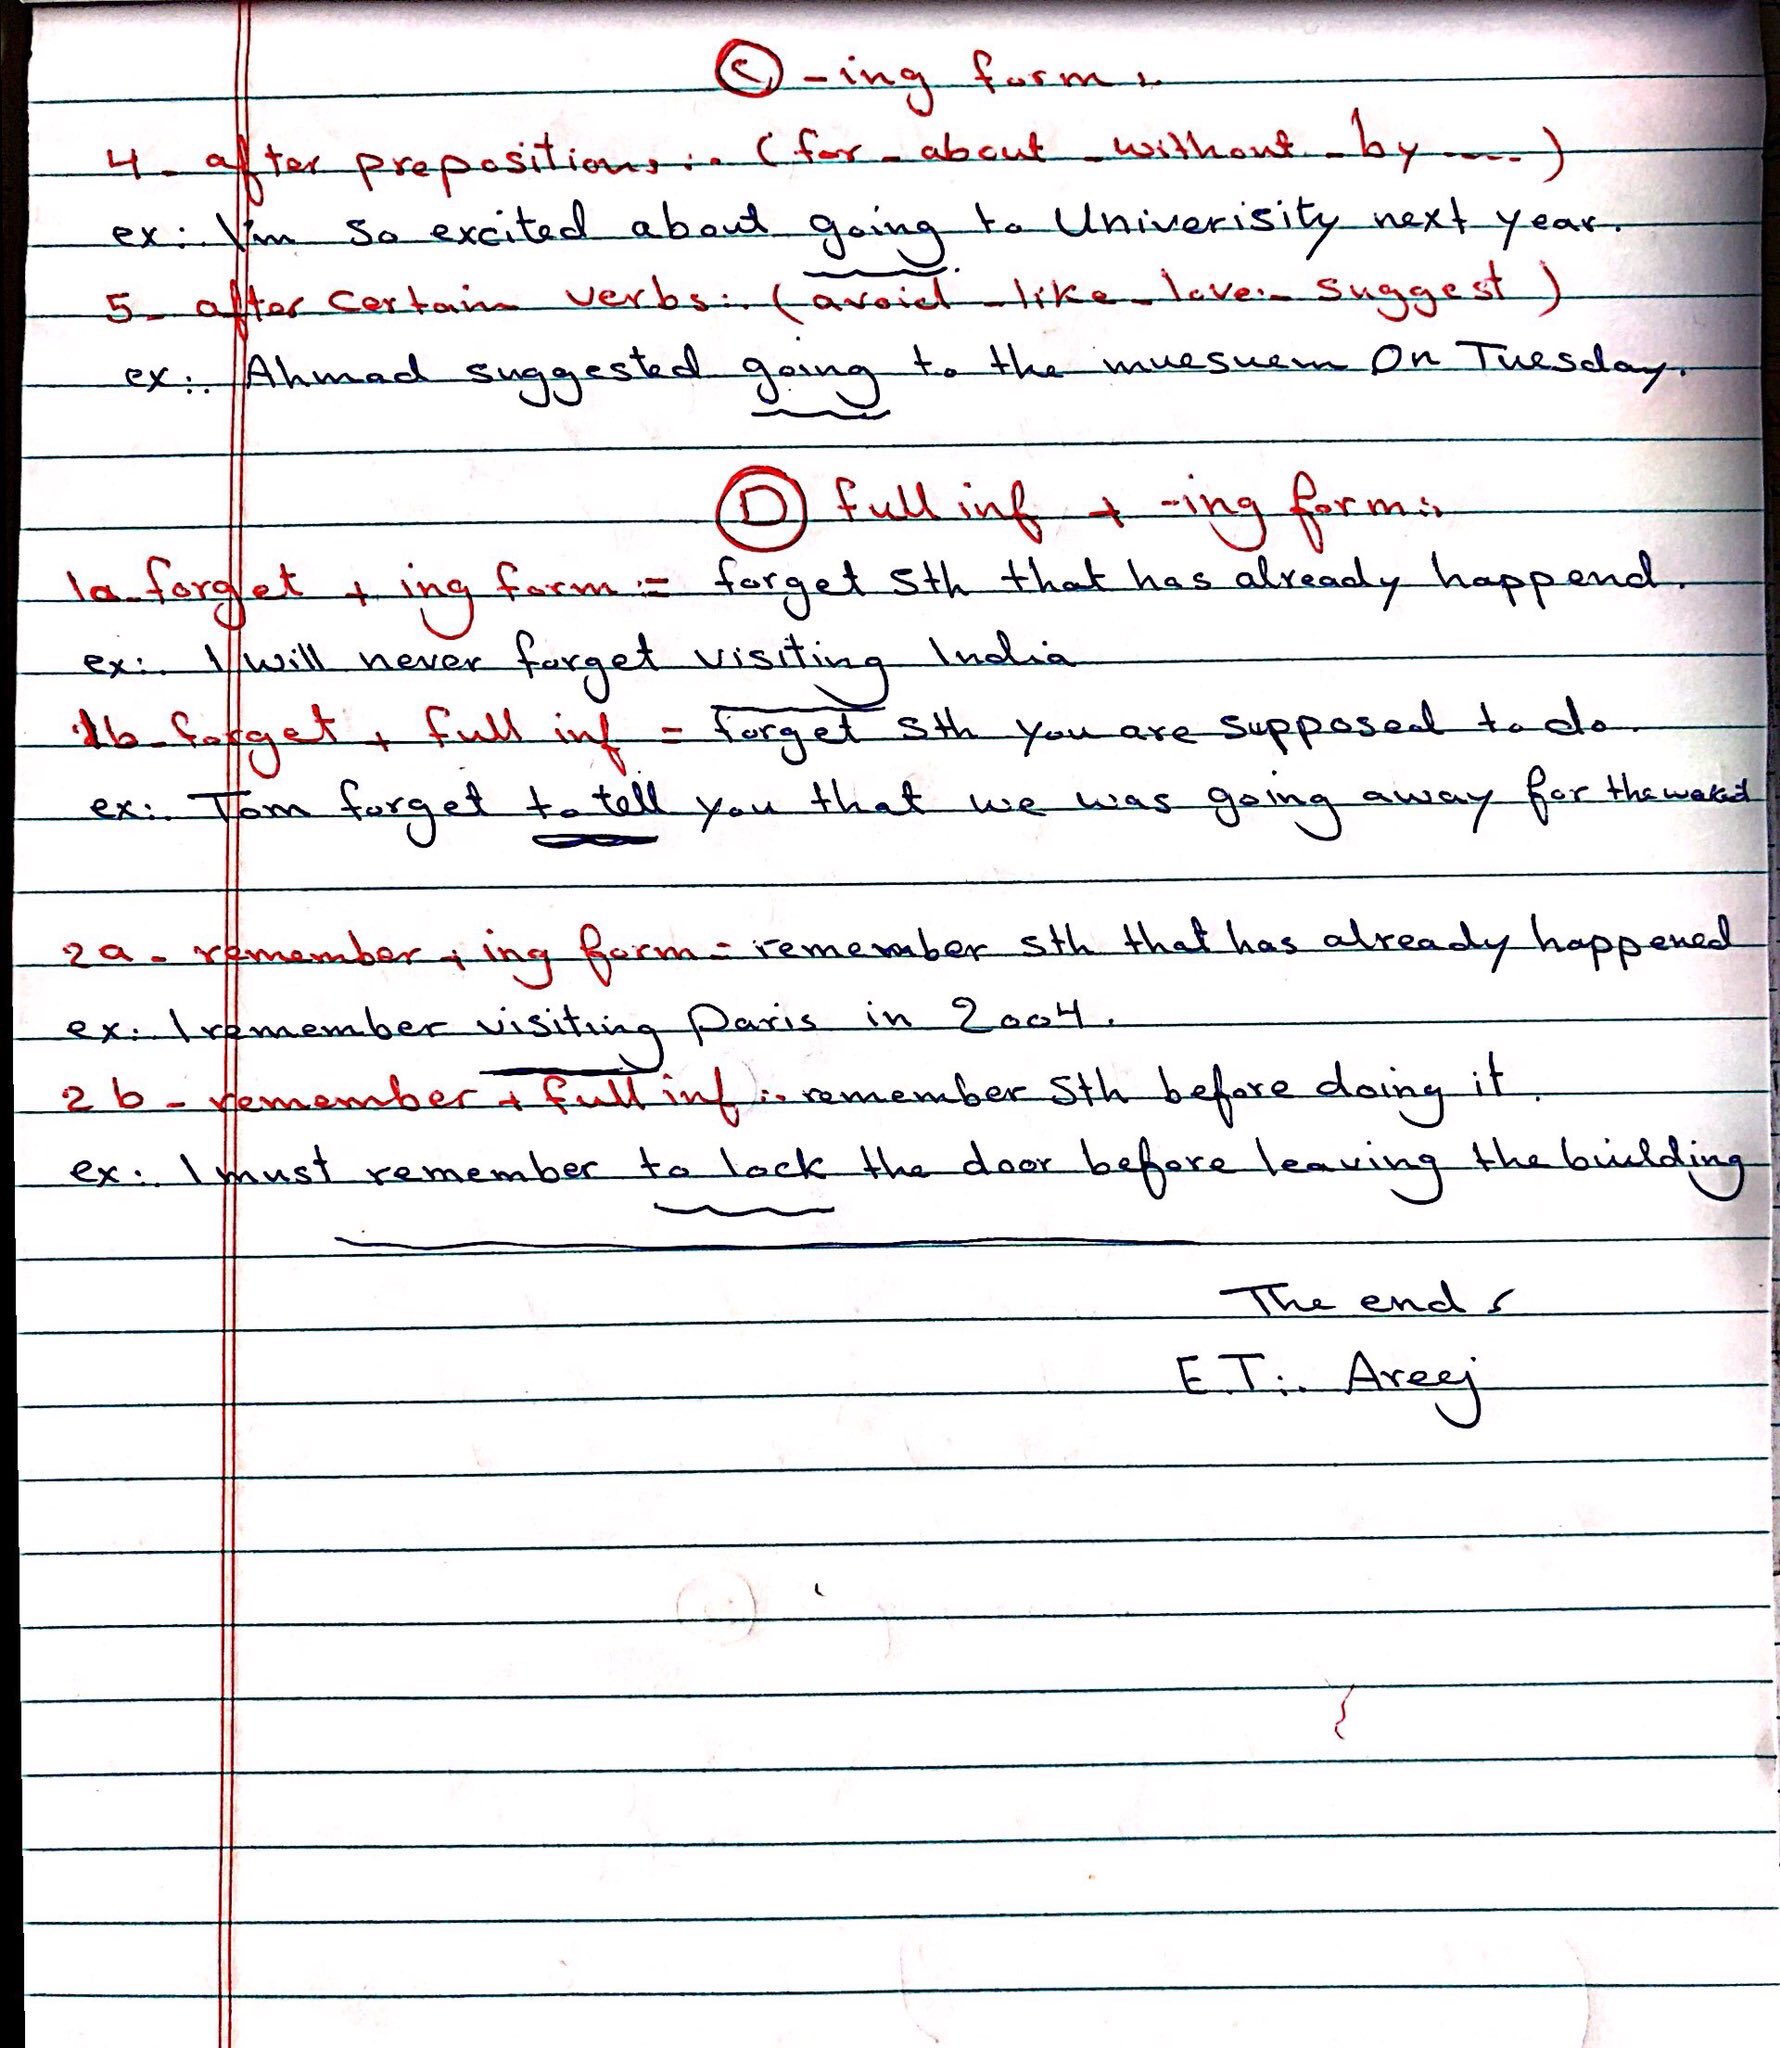 C -ing form:
4- after prepositions:. (for - about - without - by ....)
ex:. I'm so excited about going to Univerisity next year.
5- after certain verbs:. (avoid - like - love - suggest)
ex:. Ahmad suggested going to the muesuem On Tuesday.
D full inf + -ing form:.
1a- forget + ing form := forget sth that has already happend.
ex:. I will never forget visiting India
1b- forget + full inf = forget sth you are supposed to do.
ex:. Tom forget to tell you that we was going away for the
2a- remember + ing form = remember sth that has already happened
ex:. I remember visiting Paris in 2004.
2b- remember + full inf :. remember sth before doing it.
ex:. I must remember to lock the door before leaving the building
The end
E.T:. Areej